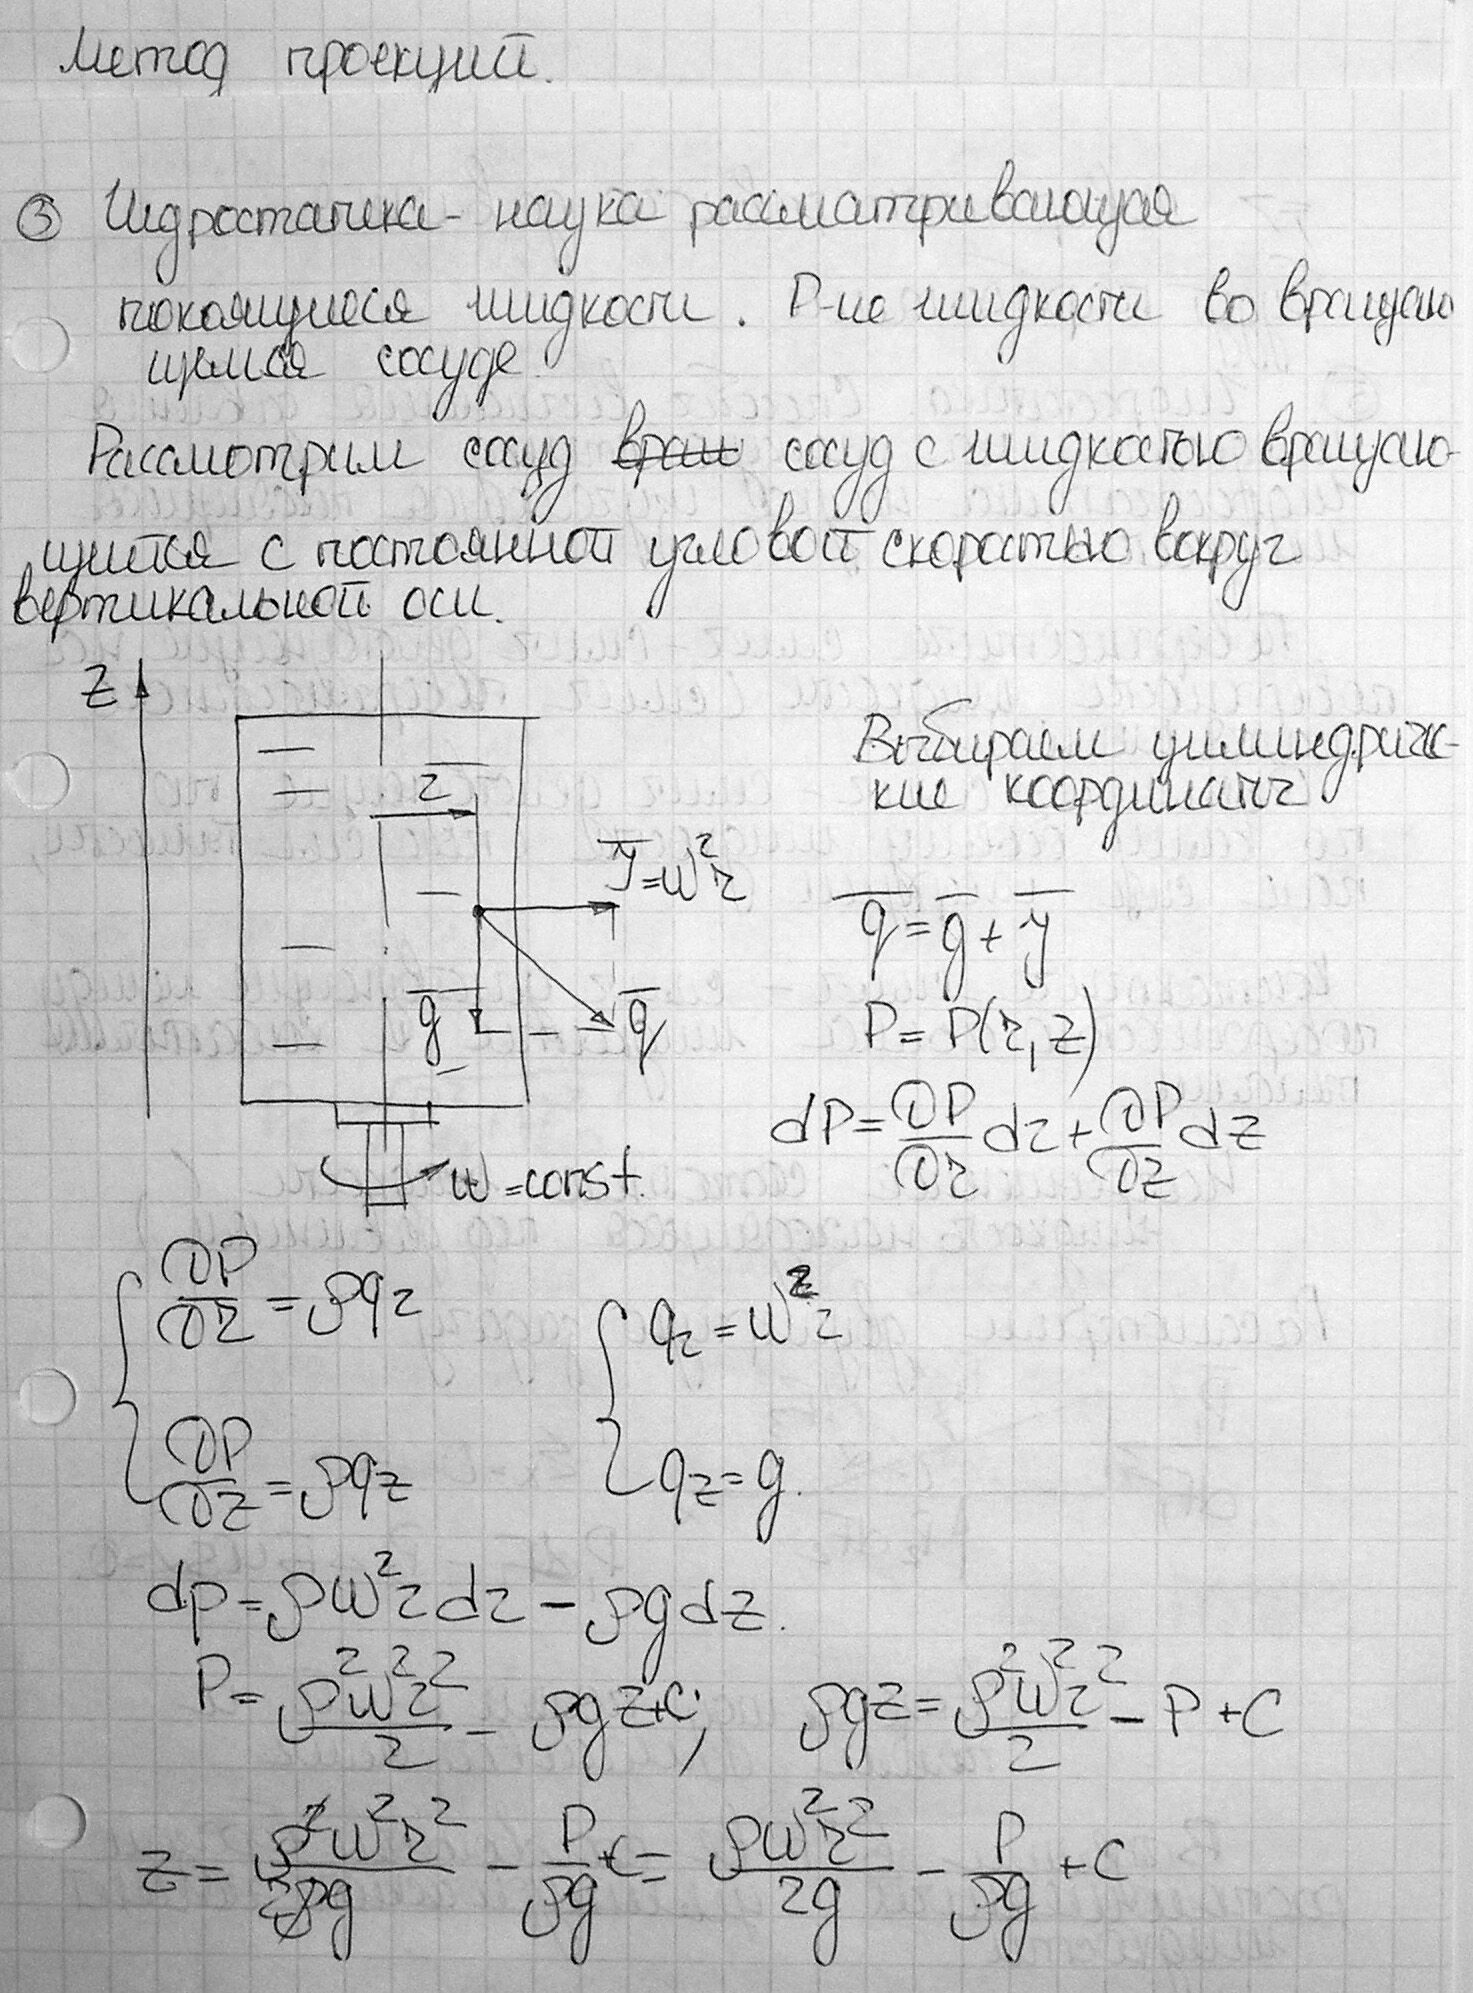 Метод проекций.
③ Гидростатика - наука рассматривающая
покоящиеся жидкости. Р-ие жидкости во вращаю
щемся сосуде.
Рассмотрим сосуд вращ сосуд с жидкостью вращаю-
щийся с постоянной угловой скоростью вокруг
вертикальной оси.
z
r
Выбираем цилиндричес-
кие координаты
j̅=ω²r
q̅=g̅+j̅
g̅
q̅
P=P(r,z)
dP=∂P/∂r dr+∂P/∂z dz
ω=const.
∂P/∂r=ρqr
qr=ω²r
∂P/∂z=ρqz
qz=g.
dp=ρω²rdr-ρgdz.
P=ρ²ω²r²/2-ρgz+C; ρgz=ρ²ω²r²/2-P+C
z=ρ²ω²r²/2ρg-P/ρg+C=ρω²r²/2g-P/ρg+C